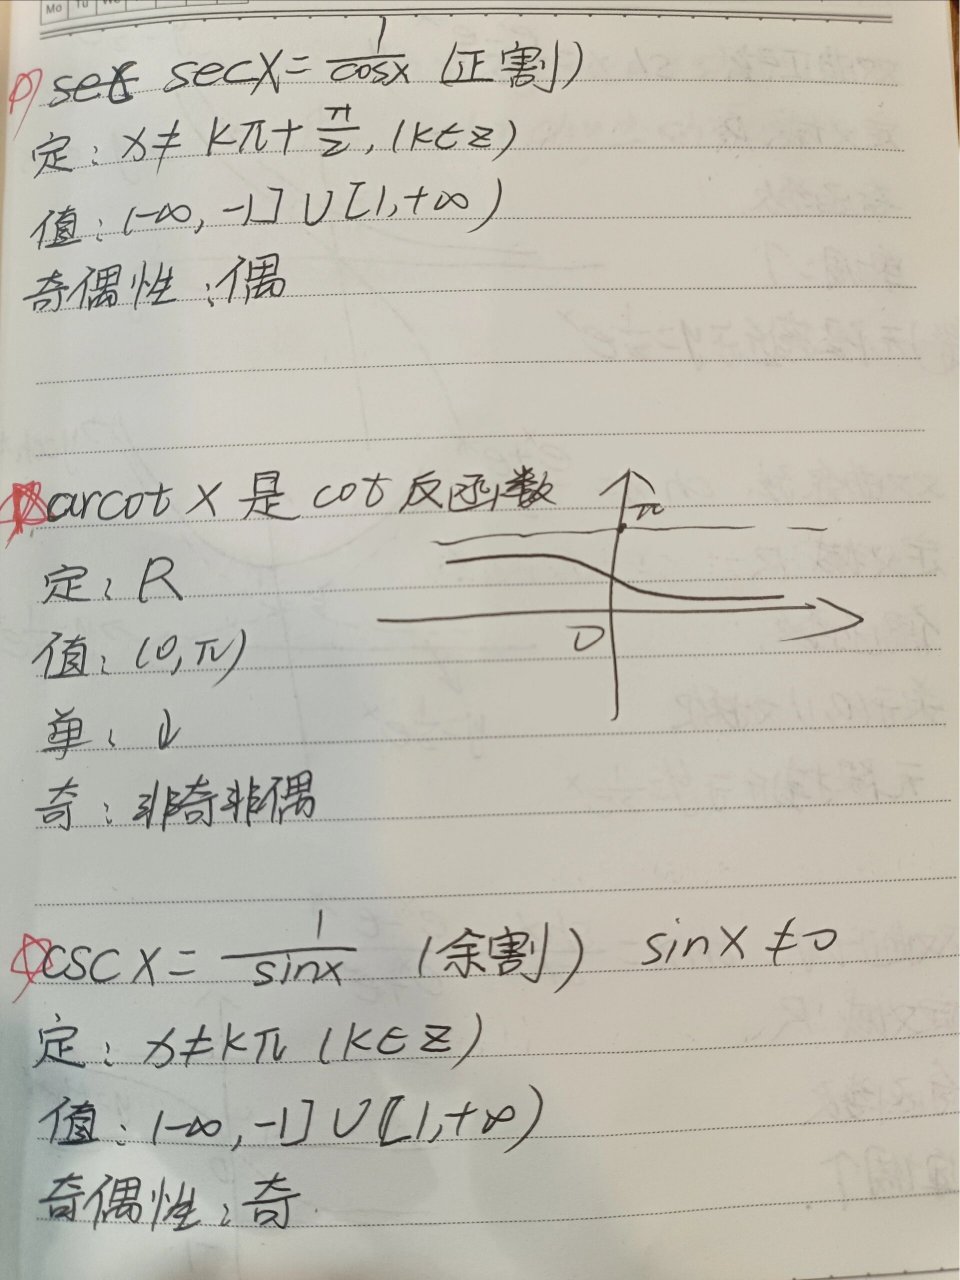 Mo Tu We
sec secx = 1/cosx (正割)
定: x ≠ kπ + π/2, (k∈z)
值: (-∞, -1] ∪ [1, +∞)
奇偶性: 偶
arcot x 是 cot 反函数
π
定: R
值: (0, π)
0
单: ↓
奇: 非奇非偶
csc x = 1/sinx (余割) sinx ≠ 0
定: x ≠ kπ (k∈z)
值: (-∞, -1] ∪ [1, +∞)
奇偶性: 奇